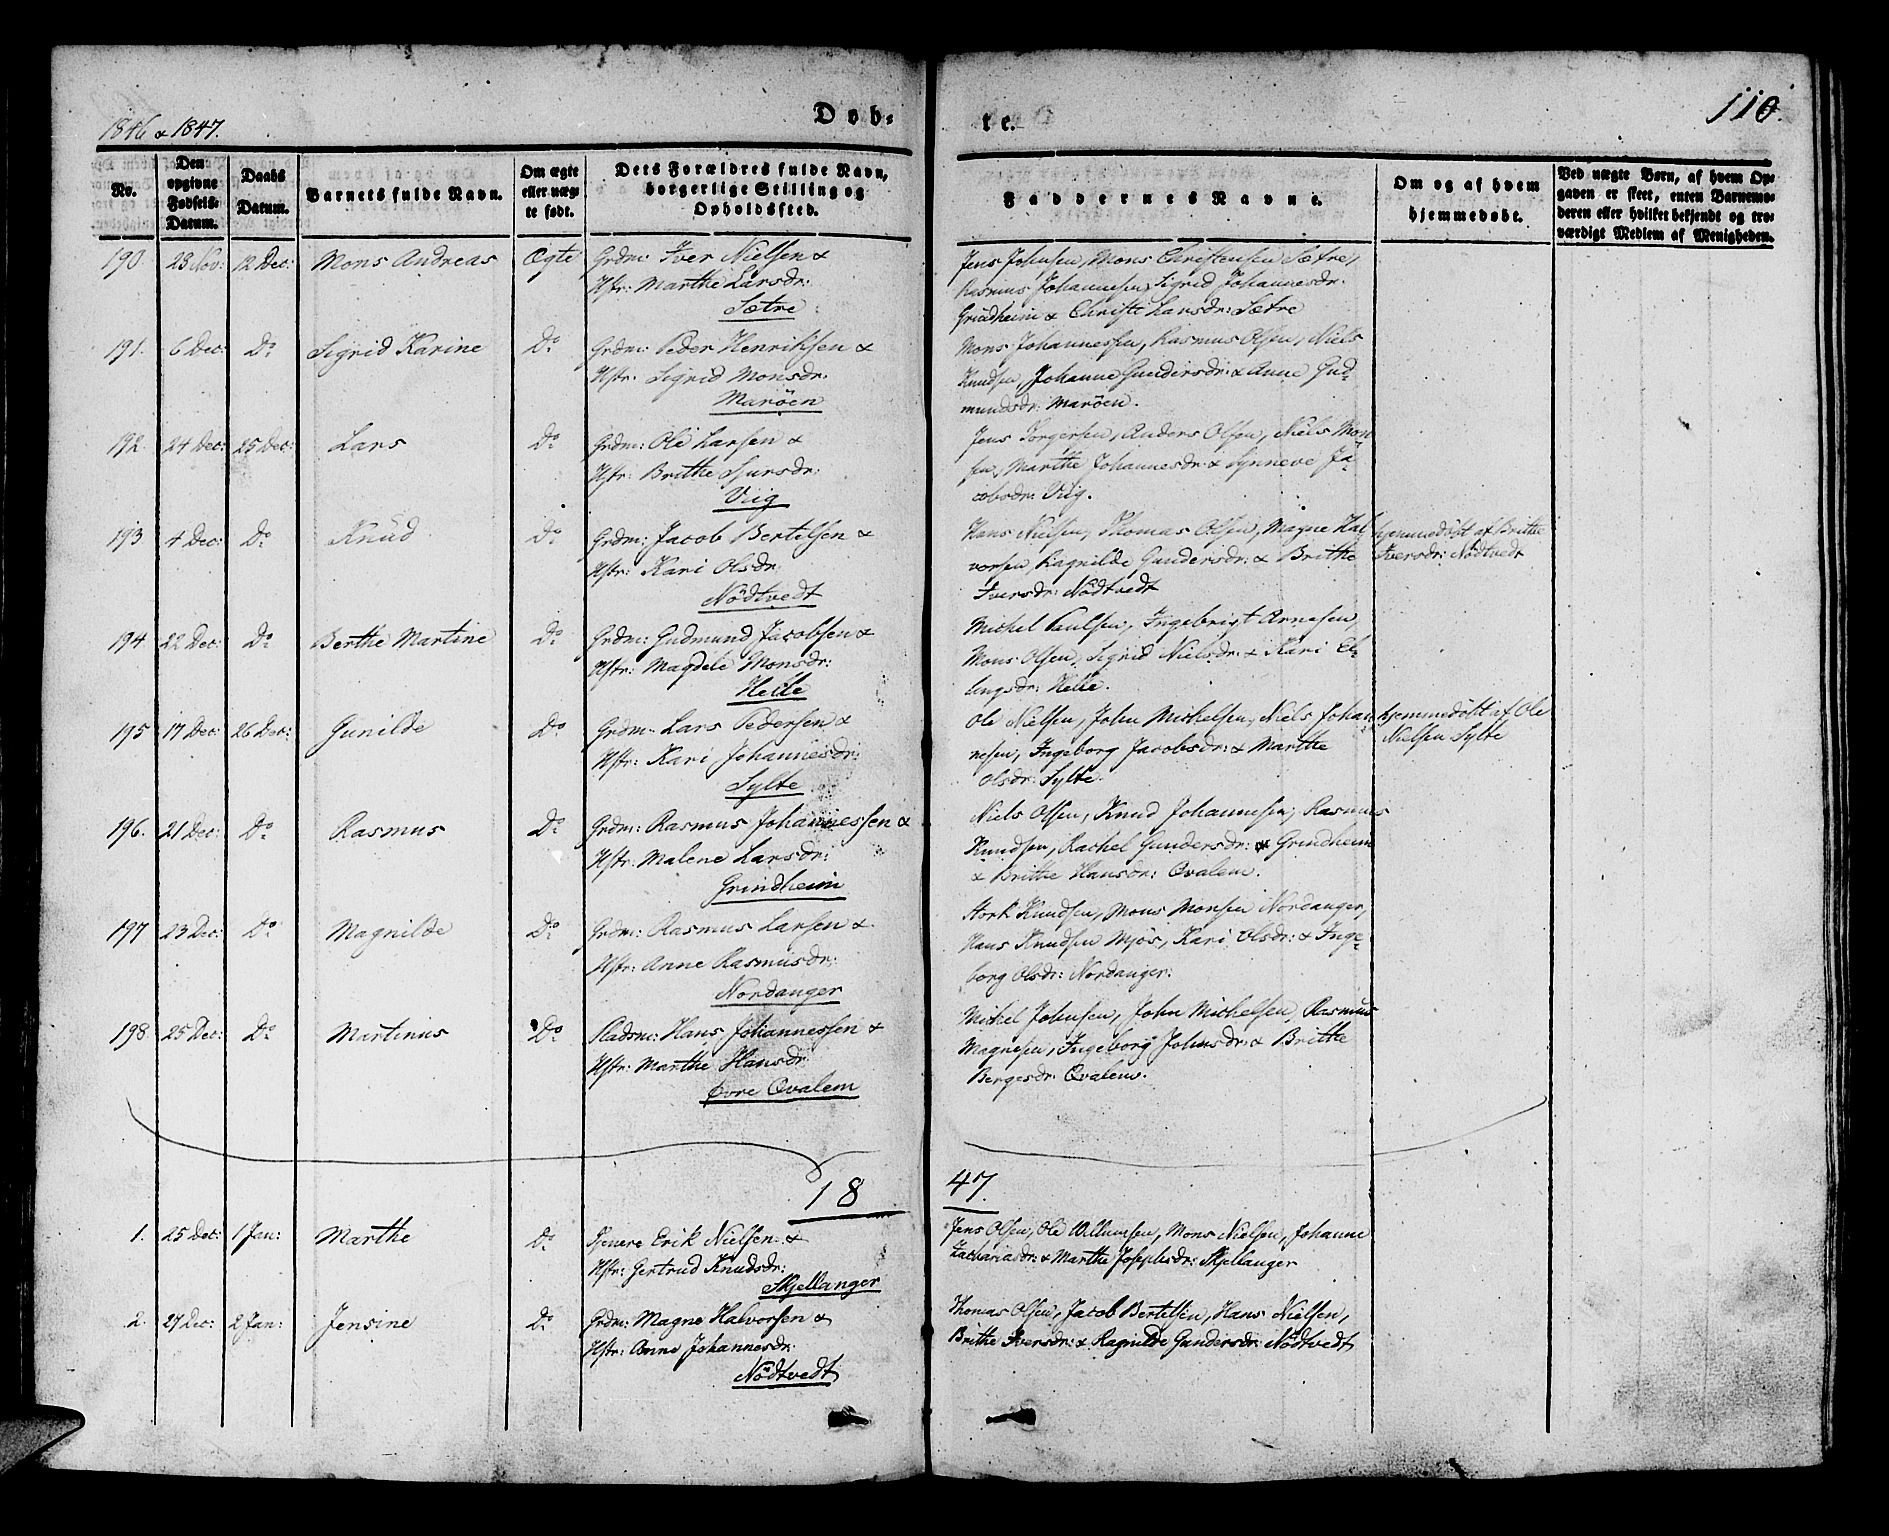 1846 & 1847.
Døb-
te.
110.
No.
Den opgivne Fødsels-Datum.
Daabs Datum.
Barnets fulde Navn.
Om ægte eller uægte født.
Dets Forældres fulde Navn, borgerlige Stilling og Opholdssted.
Faddernes Navne.
Om og af hvem hjemmedøbt.
Ved uægte Børn, af hvem Opgaven er skeet, enten Barnemoderen eller hvilket bekjendt og troværdigt Medlem af Menigheden.
190. 23 Nov: 12 Dec: Mons Andreas Ægte Grdm: Iver Nielsen &
Hstr: Marthe Larsdr:
Sætre
Jens Johnsen, Mons Christensen Sætre,
Rasmus Johannesen, Sigrid Johannesdr:
Grindheim & Christi Larsdr: Sætre
191. 6 Dec: Do Sigrid Karine Do Grdm: Peder Henriksen &
Hstr: Sigrid Monsdr:
Marøen
Mons Johannessen, Rasmus Olsen, Niels
Knudsen, Johanne Gundersdr: & Anne Gud-
mundsdr: Marøen.
192. 24 Dec: 25 Dec: Lars Do Grdm: Ole Larsen &
Hstr: Brithe Sjursdr:
Viig
Jens Torgersen, Anders Olsen, Niels Mon-
sen, Marthe Johannesdr: & Synneve Ja-
cobsdr: Viig.
193 4 Dec: Do Knud Do Grdm: Jacob Bertelsen &
Hstr: Kari Olsdr:
Nödtvedt
Hans Nielsen, Thomas Olsen, Magne Hal-
vorsen, Ragnilde Gundersdr: & Brithe
Iversdr: Nödtvedt
hjemmedöbt af Brithe
Iversdr: Nödtvedt
194 22 Dec: Do Berthe Martine Do Grdm: Gudmund Jacobsen &
Hstr: Magdele Monsdr:
Helle
Michel Paulsen, Ingebrigt Arnesen,
Mons Olsen, Sigrid Nielsdr: & Kari El-
lingsdr: Helle.
195 17 Dec: 26 Dec: Gunilde Do Grdm: Lars Pedersen &
Hstr: Kari Johannesdr:
Sylte
Ole Nielsen, John Michelsen, Niels Johan-
nesen, Ingeborg Jacobsdr: & Marthe
Olsdr: Sylte.
hjemmedöbt af Ole
Nielsen Sylte
196. 21 Dec: Do Rasmus Do Grdm: Rasmus Johannessen &
Hstr: Malene Larsdr:
Grindheim
Niels Olsen, Knud Johannesen, Rasmus
Knudsen, Rachel Gundersdr: & Grindheim
& Brithe Hansdr: Qvalem.
197 23 Dec: Do Magnilde Do Grdm: Rasmus Larsen &
Hstr: Anne Rasmusdr:
Nordanger
Stork Knudsen, Mons Monsen Nordanger,
Hans Knudsen Mjös, Kari Olsdr: & Inge-
borg Olsdr: Nordanger.
198 25 Dec: Do Martinus Do Pladsm: Hans Johannessen &
Hstr: Marthe Hansdr:
Øvre Qvalem
Michel Johnsen, John Michelsen, Rasmus
Magnesen, Ingeborg Johnsdr: & Brithe
Bergesdr: Qvalem.
18
47.
1. 25 Dec: 1 Jan: Marthe Do Tjenere Erik Nielsen &
Hstr: Gertrud Knudsdr:
Skjellanger
Jens Olsen, Ole Willumsen, Mons Nielsen, Johanne
Zachariasdr: & Marthe Josephsdr: Skjellanger
2. 27 Dec: 2 Jan: Jensine Do Grdm: Magne Halvorsen &
Hstr: Anne Johannesdr:
Nödtvedt
Thomas Olsen, Jacob Bertelsen, Hans Nielsen,
Brithe Iversdr: & Ragnilde Gundersdr: Nödtvedt